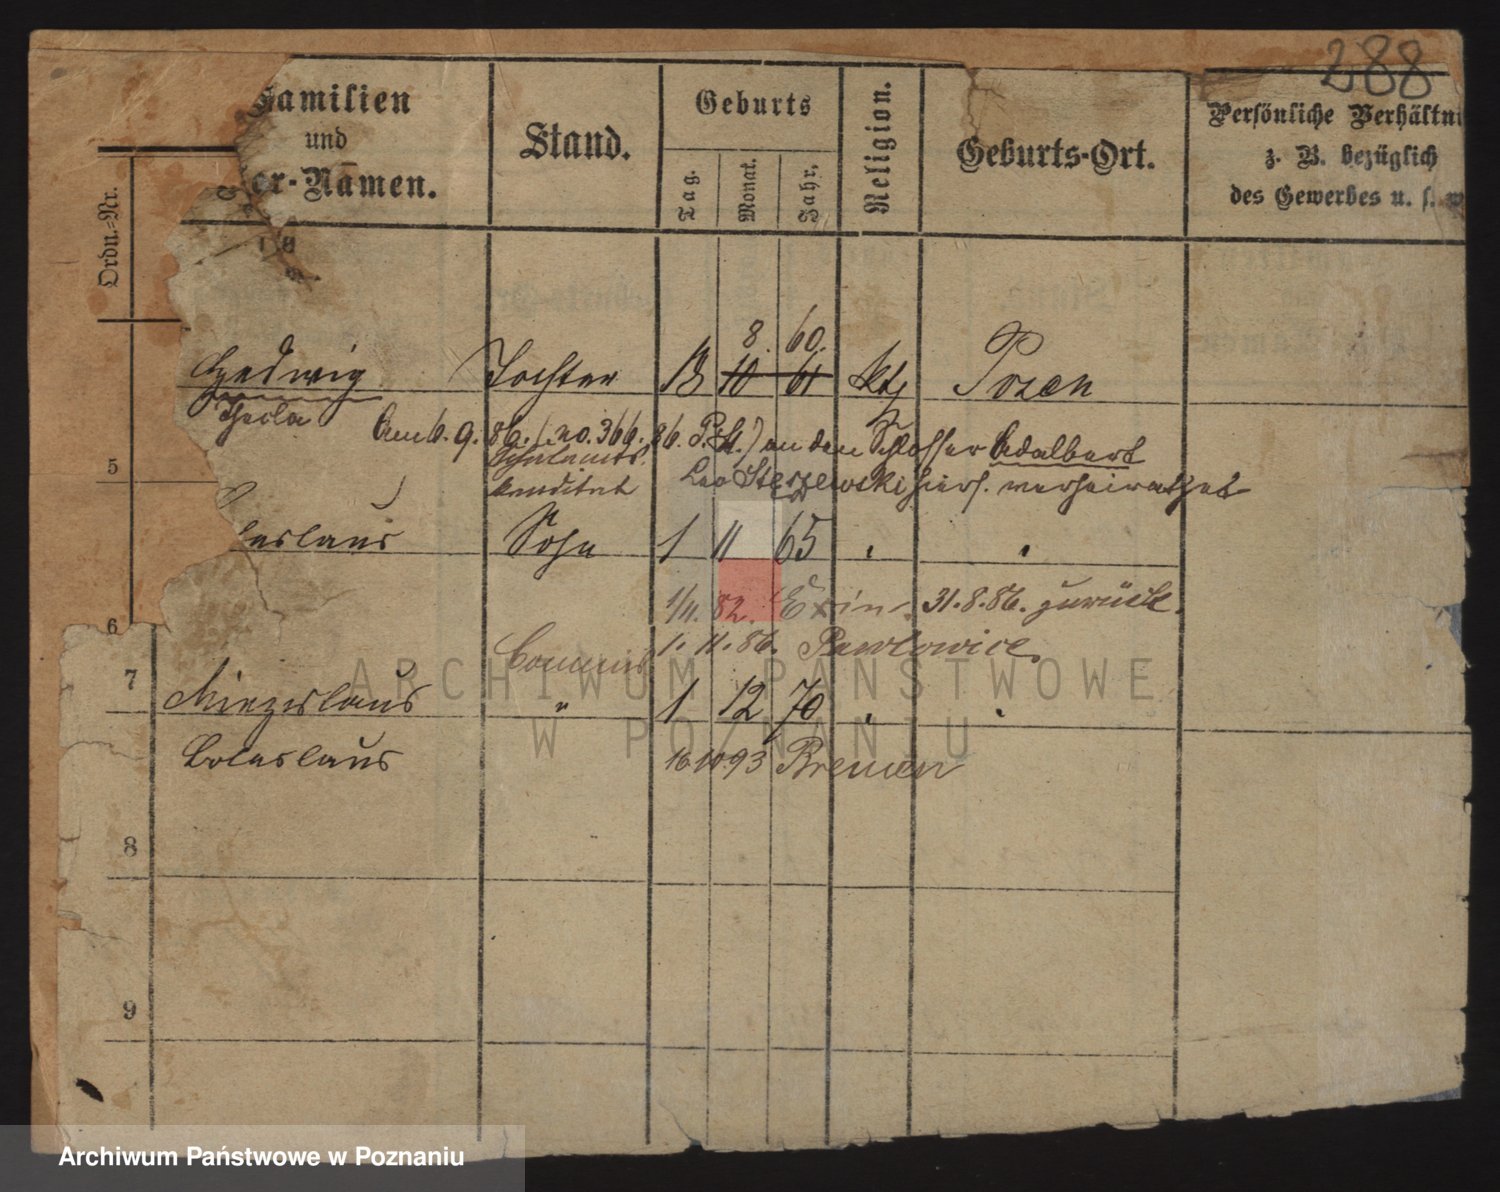 288
Familien
und
er-Namen.
Stand.
Geburts
Tag.
Monat.
Jahr.
Religion.
Geburts-Ort.
Persönliche Verhältni
z. B. bezüglich
des Gewerbes u. s. w
Ordn.-Nr.
8. 60.
Hedwig Tochter 13 10 61 kth Posen
Thecla
Am 6. 9. 86. (no. 366. 86. P. St.) an den Schlosser Adalbert
Schulamts.
Kanditat
Leo Sterzewski hiers. verheirathet
5
eslaus Sohn 1 11 65 " "
1/11. 82. Exin. 31.8.86. zurück.
6
Commis 1. 11. 86. Pawlowice.
7
Miezislaus " 1 12 70 " "
Boleslaus 16 10 93 Bremen
8
9
ARCHIWUM PAŃSTWOWE
W POZNANIU
Archiwum Państwowe w Poznaniu